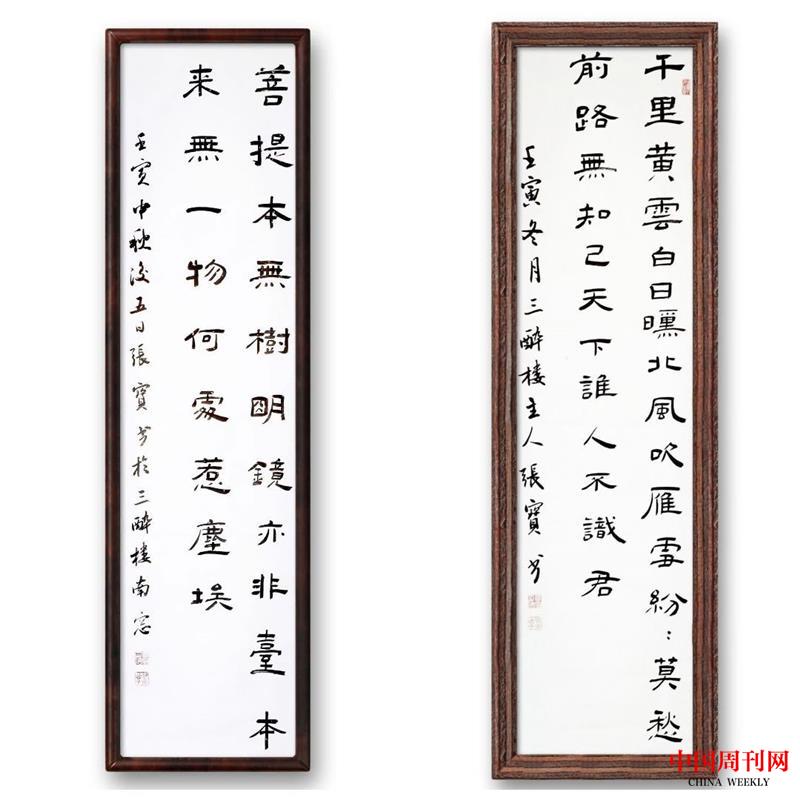 菩提本無樹明鏡亦非臺本
来無一物何處惹塵埃
壬寅中秋後五日張寶书於三醉楼南窓
千里黄雲白日曛北風吹雁雪紛：莫愁
前路無知己天下誰人不識君
壬寅冬月三醉楼主人張寶书
中国周刊网
CHINA WEEKLY